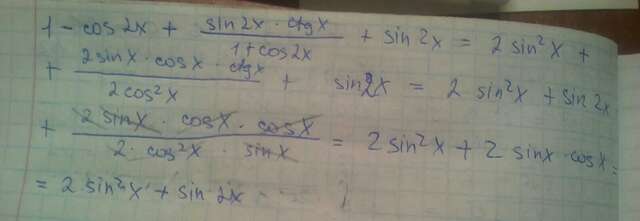 1 - cos 2x + (sin 2x · ctg x)/(1 + cos 2x) + sin 2x = 2 sin² x +
+ (2 sin x · cos x · ctg x)/(2 cos² x) + sin 2x = 2 sin² x + sin 2x
+ (2 sin x · cos x · cos x)/(2 · cos² x · sin x) = 2 sin² x + 2 sin x · cos x =
= 2 sin² x + sin 2x